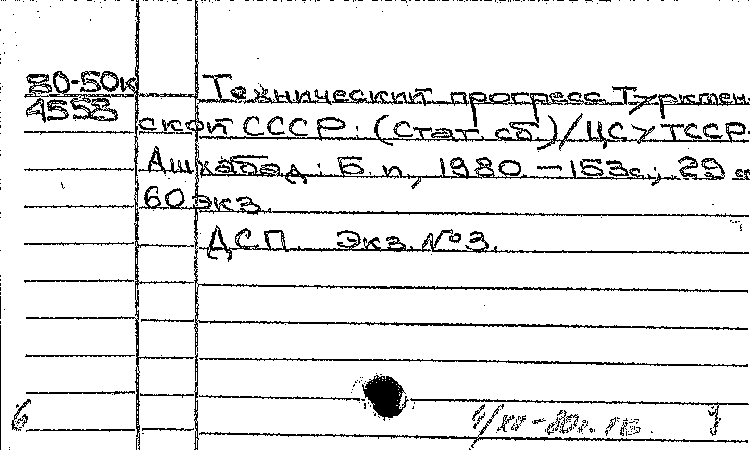 80-50к Технический прогресс Туркмен-
4553 ской СССР: (Стат. сб.)/ЦСУ ТССР.-
Ашхабад: Б.и., 1980.-153с.; 29 см
60 экз.
ДСП. Экз. №3.
6